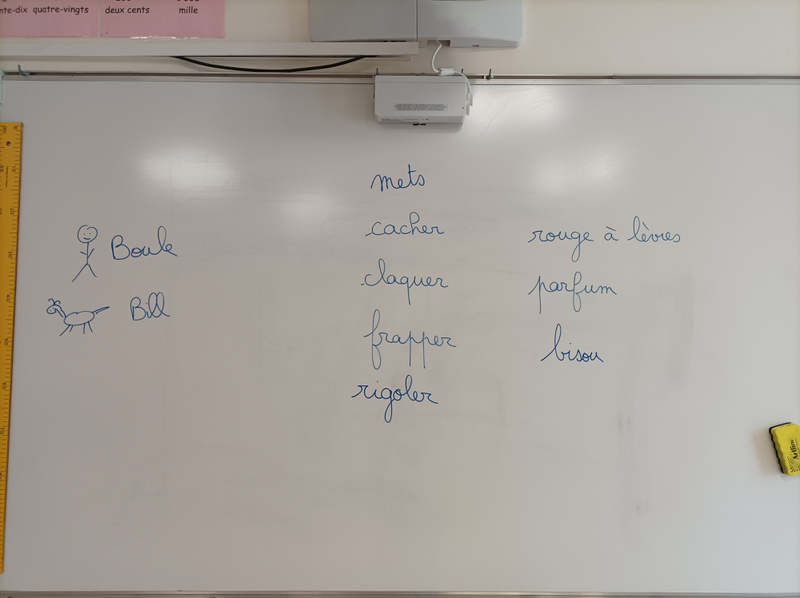 nte-dix quatre-vingts deux cents mille
mets
cacher
claquer
frapper
rigoler
Boule
Bill
rouge à lèvres
parfum
bisou
Artline